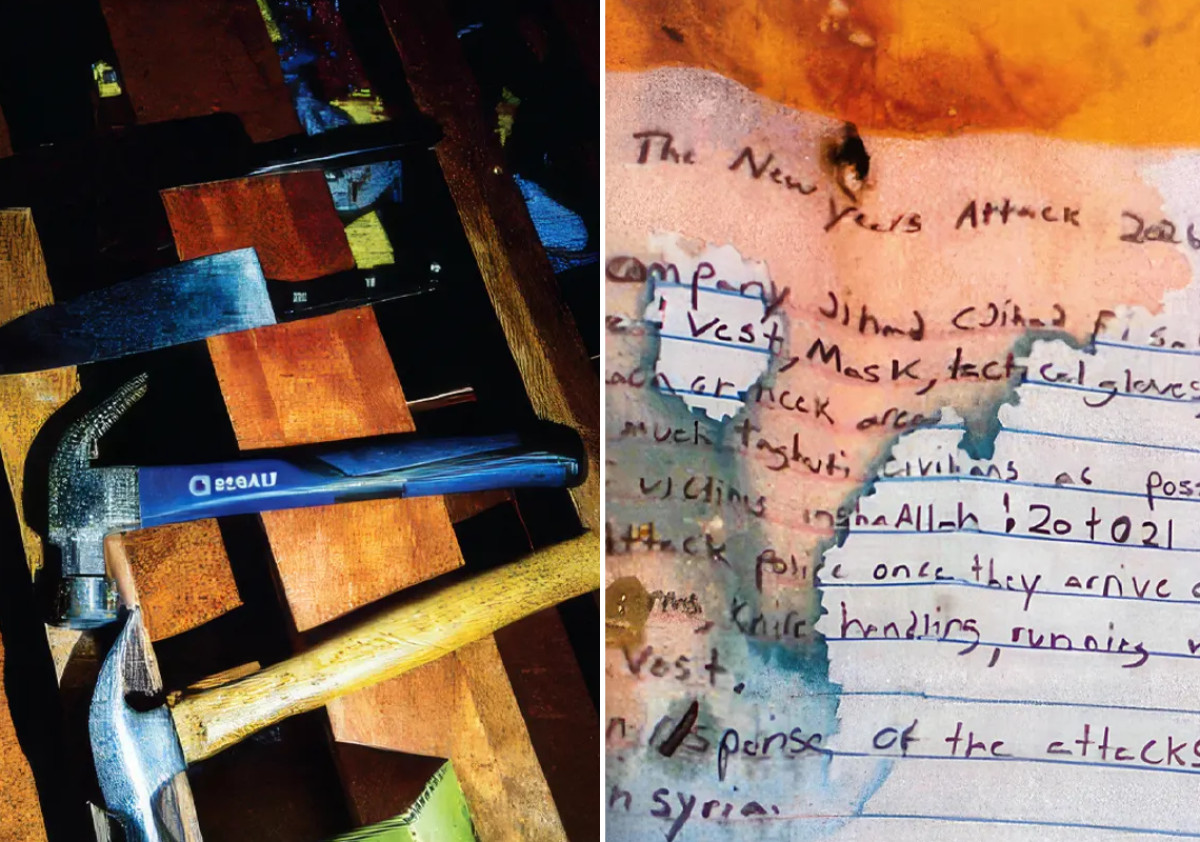 The New Years Attack 2026
Jihad (Jihad Fisa
Vest, Mask, tactical gloves
or neck area
much taghuti civilians as poss
victims inshaAllah ! 20 to 21
Attack police once they arrive
, Knife handling, running
Vest.
of the attacks
n syria.